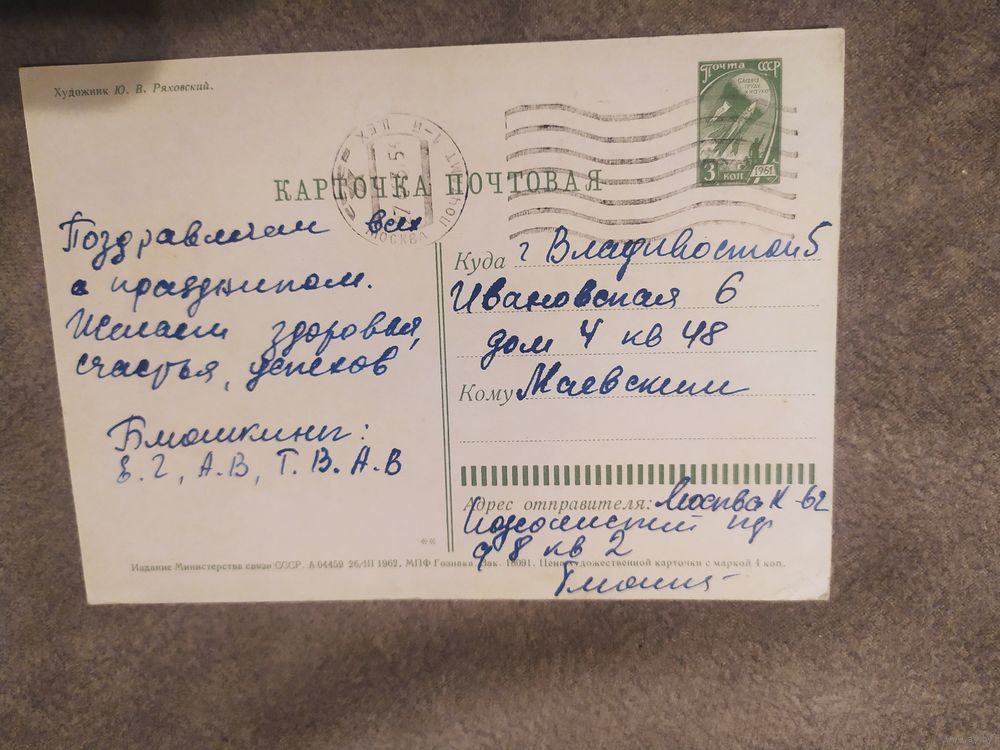 Художник Ю. В. Ряховский.
Почта СССР
СЛАВА
ТРУДУ
И НАУКЕ
3 коп 1961
МОСКВА
КАРТОЧКА ПОЧТОВАЯ
Поздравляем всех
с праздником.
Желаем здоровья,
счастья, успехов
Е.Г, А.В, Т.В. А.В
Куда г Владивосток 5
Ивановская 6
дом 4 кв 48
Кому Маевским
Адрес отправителя: Москва К-62
д 8 кв 2
Издание Министерства связи СССР. А 04459 26/III 1962. МПФ Гознака. Зак. 10091. Цена художественной карточки с маркой 4 коп.